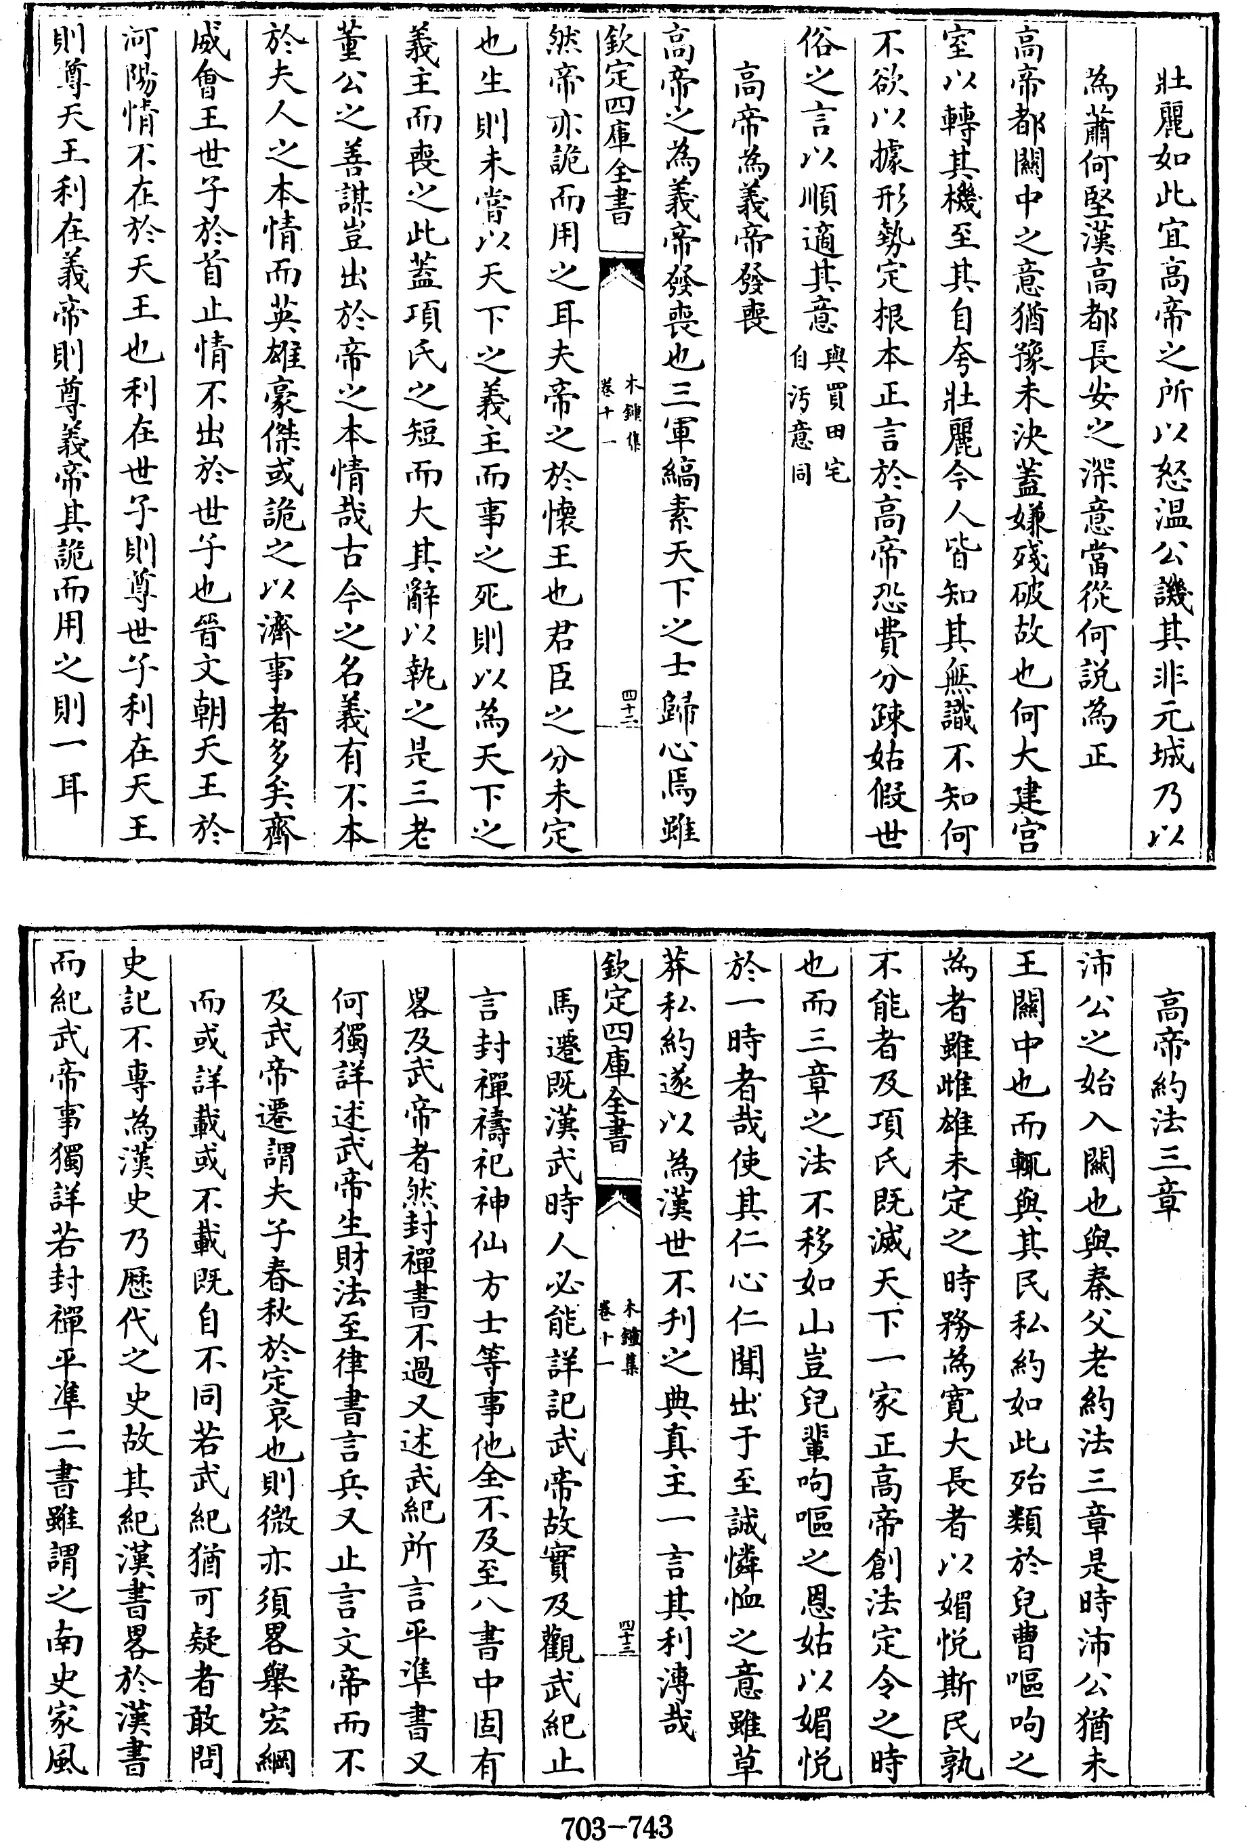 壯麗如此宜高帝之所以怒温公譏其非元城乃以
為蕭何堅漢高都長安之深意當從何説為正
高帝都關中之意猶豫未決蓋嫌殘破故也何大建宫
室以轉其機至其自夸壯麗令人皆知其無識不知何
不欲以據形勢定根本正言於高帝恐費分疎姑假世
俗之言以順適其意與買田宅
自汚意同
高帝為義帝發喪
高帝之為義帝發喪也三軍縞素天下之士歸心焉雖
欽定四庫全書
木鐘集
卷十一
四十二
然帝亦詭而用之耳夫帝之於懷王也君臣之分未定
也生則未嘗以天下之義主而事之死則以為天下之
義主而喪之此蓋項氏之短而大其辭以執之是三老
董公之善謀豈出於帝之本情哉古今之名義有不本
於夫人之本情而英雄豪傑或詭之以濟事者多矣齊
威會王世子於首止情不出於世子也晉文朝天王於
河陽情不在於天王也利在世子則尊世子利在天王
則尊天王利在義帝則尊義帝其詭而用之則一耳
高帝約法三章
沛公之始入關也與秦父老約法三章是時沛公猶未
王關中也而輒與其民私約如此殆類於兒曹嘔呴之
為者雖雌雄未定之時務為寛大長者以媚悦斯民孰
不能者及項氏既滅天下一家正高帝創法定令之時
也而三章之法不移如山豈兒輩呴嘔之恩姑以媚悦
於一時者哉使其仁心仁聞出于至誠憐恤之意雖草
莽私約遂以為漢世不刋之典真主一言其利溥哉
欽定四庫全書
木鐘集
卷十一
四十三
馬遷既漢武時人必能詳記武帝故實及觀武紀止
言封禪禱祀神仙方士等事他全不及至八書中固有
畧及武帝者然封禪書不過又述武紀所言平準書又
何獨詳述武帝生財法至律書言兵又止言文帝而不
及武帝遷謂夫子春秋於定哀也則微亦須畧舉宏綱
而或詳載或不載既自不同若武紀猶可疑者敢問
史記不專為漢史乃歴代之史故其紀漢書畧於漢書
而紀武帝事獨詳若封禪平準二書雖謂之南史家風
703-743